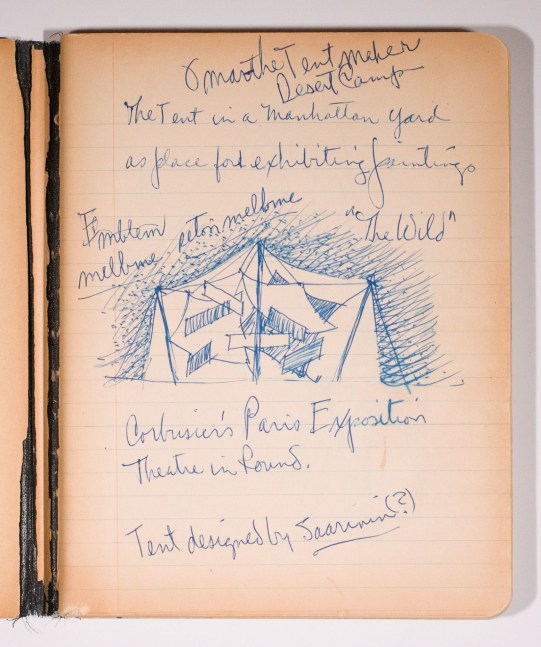 Omar the Tent maker
Desert Camp
The Tent in a Manhattan yard
as place for exhibiting paintings
Emblem
melbme petori melbme
"The Wild"
Corbusier's Paris Exposition
Theatre in Round.
Tent designed by Saarinin (?)